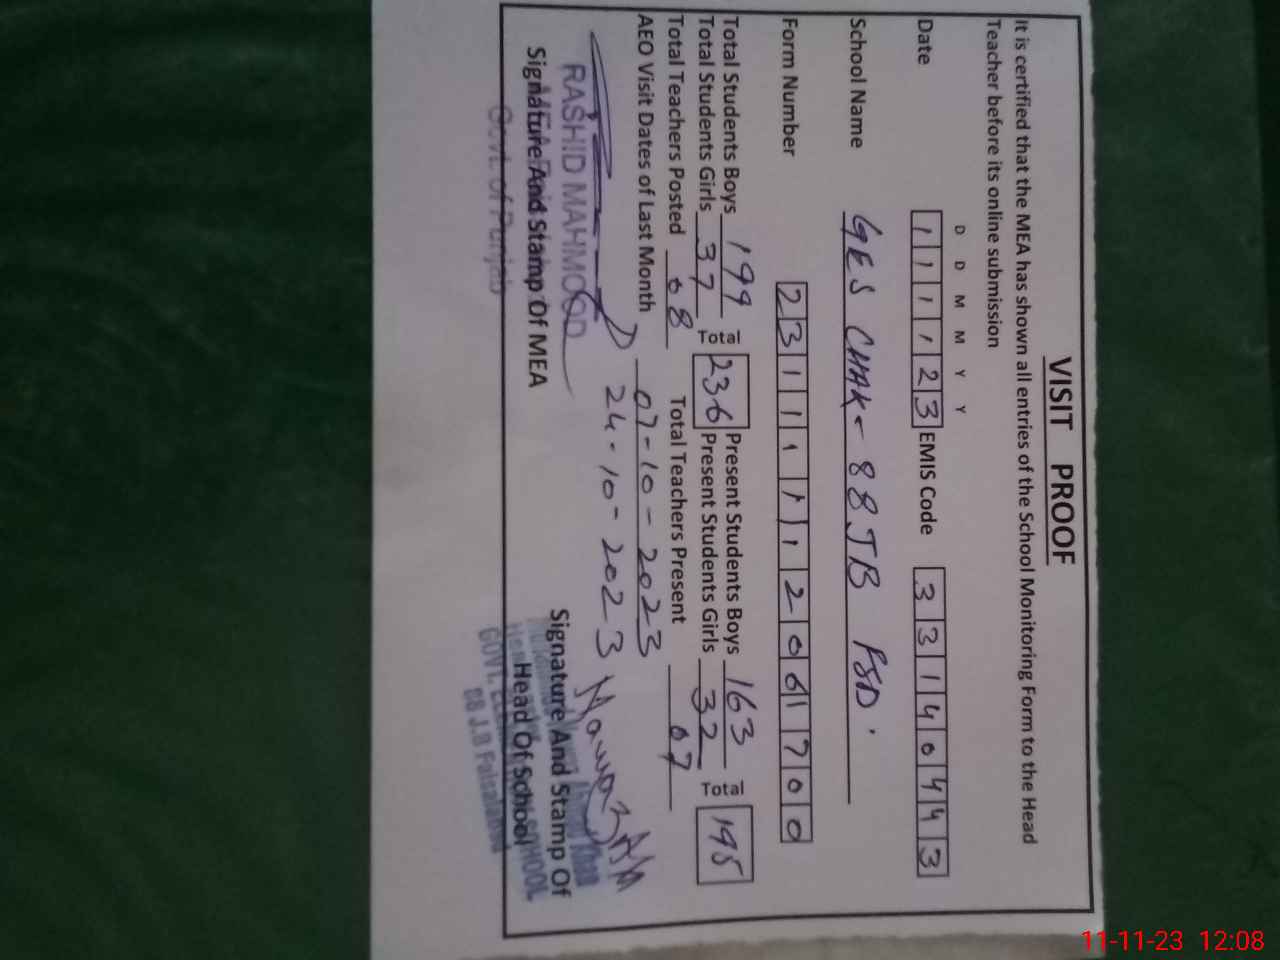 VISIT PROOF
It is certified that the MEA has shown all entries of the School Monitoring Form to the Head
Teacher before its online submission
D D M M Y Y
Date 111123 EMIS Code 33140443
School Name GES CHAK-88JB FSD.
Form Number 231111112061700
Total Students Boys 199 Total 236 Present Students Boys 163 Total 195
Total Students Girls 37 Present Students Girls 32
Total Teachers Posted 08 Total Teachers Present 07
AEO Visit Dates of Last Month 07-10-2023
24-10-2023
RASHID MAHMOOD
Signature And Stamp Of MEA
Govt. of Punjab
Signature And Stamp Of
Head Of School
GOVT. SCHOOL
88 J.B Faisalabad
11-11-23 12:08